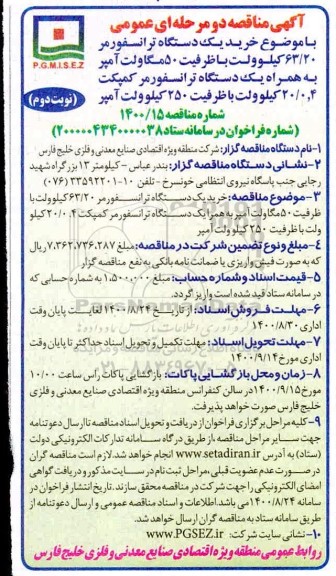 آگهی مناقصه دو مرحله ای عمومی
با موضوع خرید یک دستگاه ترانسفورمر
۶۳/۲۰ کیلوولت با ظرفیت ۵۰ مگاولت آمپر
به همراه یک دستگاه ترانسفورمر کمپکت
۲۰/۰,۴ کیلوولت با ظرفیت ۲۵۰ کیلو ولت آمپر
P.G.M.I.S.E.Z
(نوبت دوم)
شماره مناقصه ۱۴۰۰/۱۵
(شماره فراخوان در سامانه ستاد ۲۰۰۰۰۰۴۳۴۰۰۰۰۰۳۸)
۱-نام دستگاه مناقصه گزار: شرکت منطقه ویژه اقتصادی صنایع معدنی و فلزی خلیج فارس
۲-نشانی دستگاه مناقصه گزار: بندرعباس - کیلومتر ۱۳ بزرگراه شهید
رجایی جنب پاسگاه نیروی انتظامی خونسرخ - تلفن ۱۰-۳۳۵۹۲۲۰۱ (۰۷۶)
۳-موضوع مناقصه: خرید یک دستگاه ترانسفورمر ۶۳/۲۰ کیلوولت با
ظرفیت ۵۰ مگاولت آمپر به همراه یک دستگاه ترانسفورمر کمپکت ۲۰/۰,۴ کیلو
ولت با ظرفیت ۲۵۰ کیلو ولت آمپر
۴-مبلغ و نوع تضمین شرکت در مناقصه: مبلغ ۷,۳۶۲,۷۳۶,۲۸۷ ریال
که به صورت فیش واریزی یا ضمانت نامه بانکی به نفع مناقصه گزار
۵-قیمت اسناد و شماره حساب: مبلغ ۱,۵۰۰,۰۰۰ به شماره حسابی که
در سامانه ستاد قید شده است واریز گردد.
۶-مهلت فروش اسناد: از تاریخ ۱۴۰۰/۸/۲۴ لغایت پایان وقت
اداری ۱۴۰۰/۸/۳۰
۷-مهلت تحویل اسناد: مهلت تکمیل و تحویل اسناد حداکثر تا پایان وقت
اداری مورخ ۱۴۰۰/۹/۱۴
۸-زمان و محل بازگشایی پاکات: بازگشایی پاکات راس ساعت ۱۰/۰۰
مورخ ۱۴۰۰/۹/۱۵ در سالن کنفرانس منطقه ویژه اقتصادی صنایع معدنی و فلزی
خلیج فارس صورت خواهد پذیرفت.
۹-کلیه مراحل برگزاری فراخوان از دریافت و تحویل اسناد مناقصه تا ارسال دعوتنامه
جهت سایر مراحل مناقصه از طریق درگاه سامانه تدارکات الکترونیکی دولت
(ستاد) به آدرس www.setadiran.ir انجام خواهد شد. لازم است مناقصه گران
در صورت عدم عضویت قبلی، مراحل ثبت نام در سایت مذکور و دریافت گواهی
امضای الکترونیکی را جهت شرکت در مناقصه محقق سازند. تاریخ انتشار فراخوان در
سامانه ۱۴۰۰/۸/۲۴ می باشد. اطلاعات و اسناد مناقصه عمومی و ارسال دعوتنامه از
طریق سامانه ستاد به مناقصه گران ارسال خواهد شد.
۱۰-نشانی سایت شرکت: www.PGSEZ.ir
روابط عمومی منطقه ویژه اقتصادی صنایع معدنی و فلزی خلیج فارس